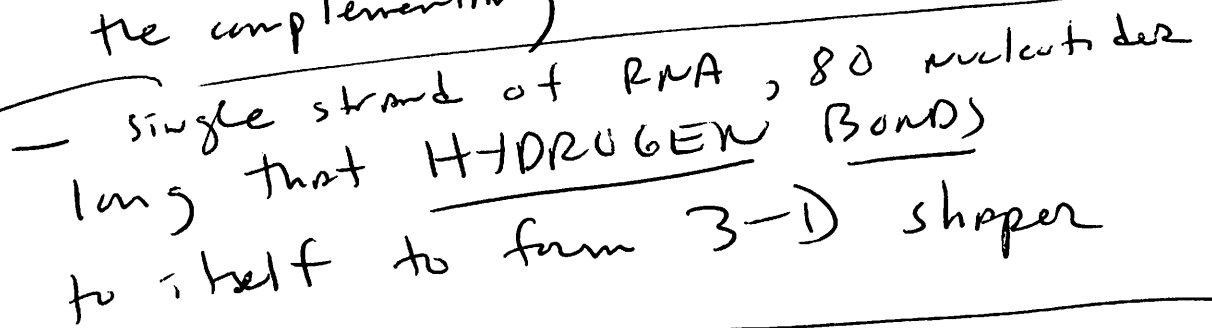 the complementary
— single strand of RNA, 80 nucleotides
long that HYDROGEN BONDS
to itself to form 3-D shapes